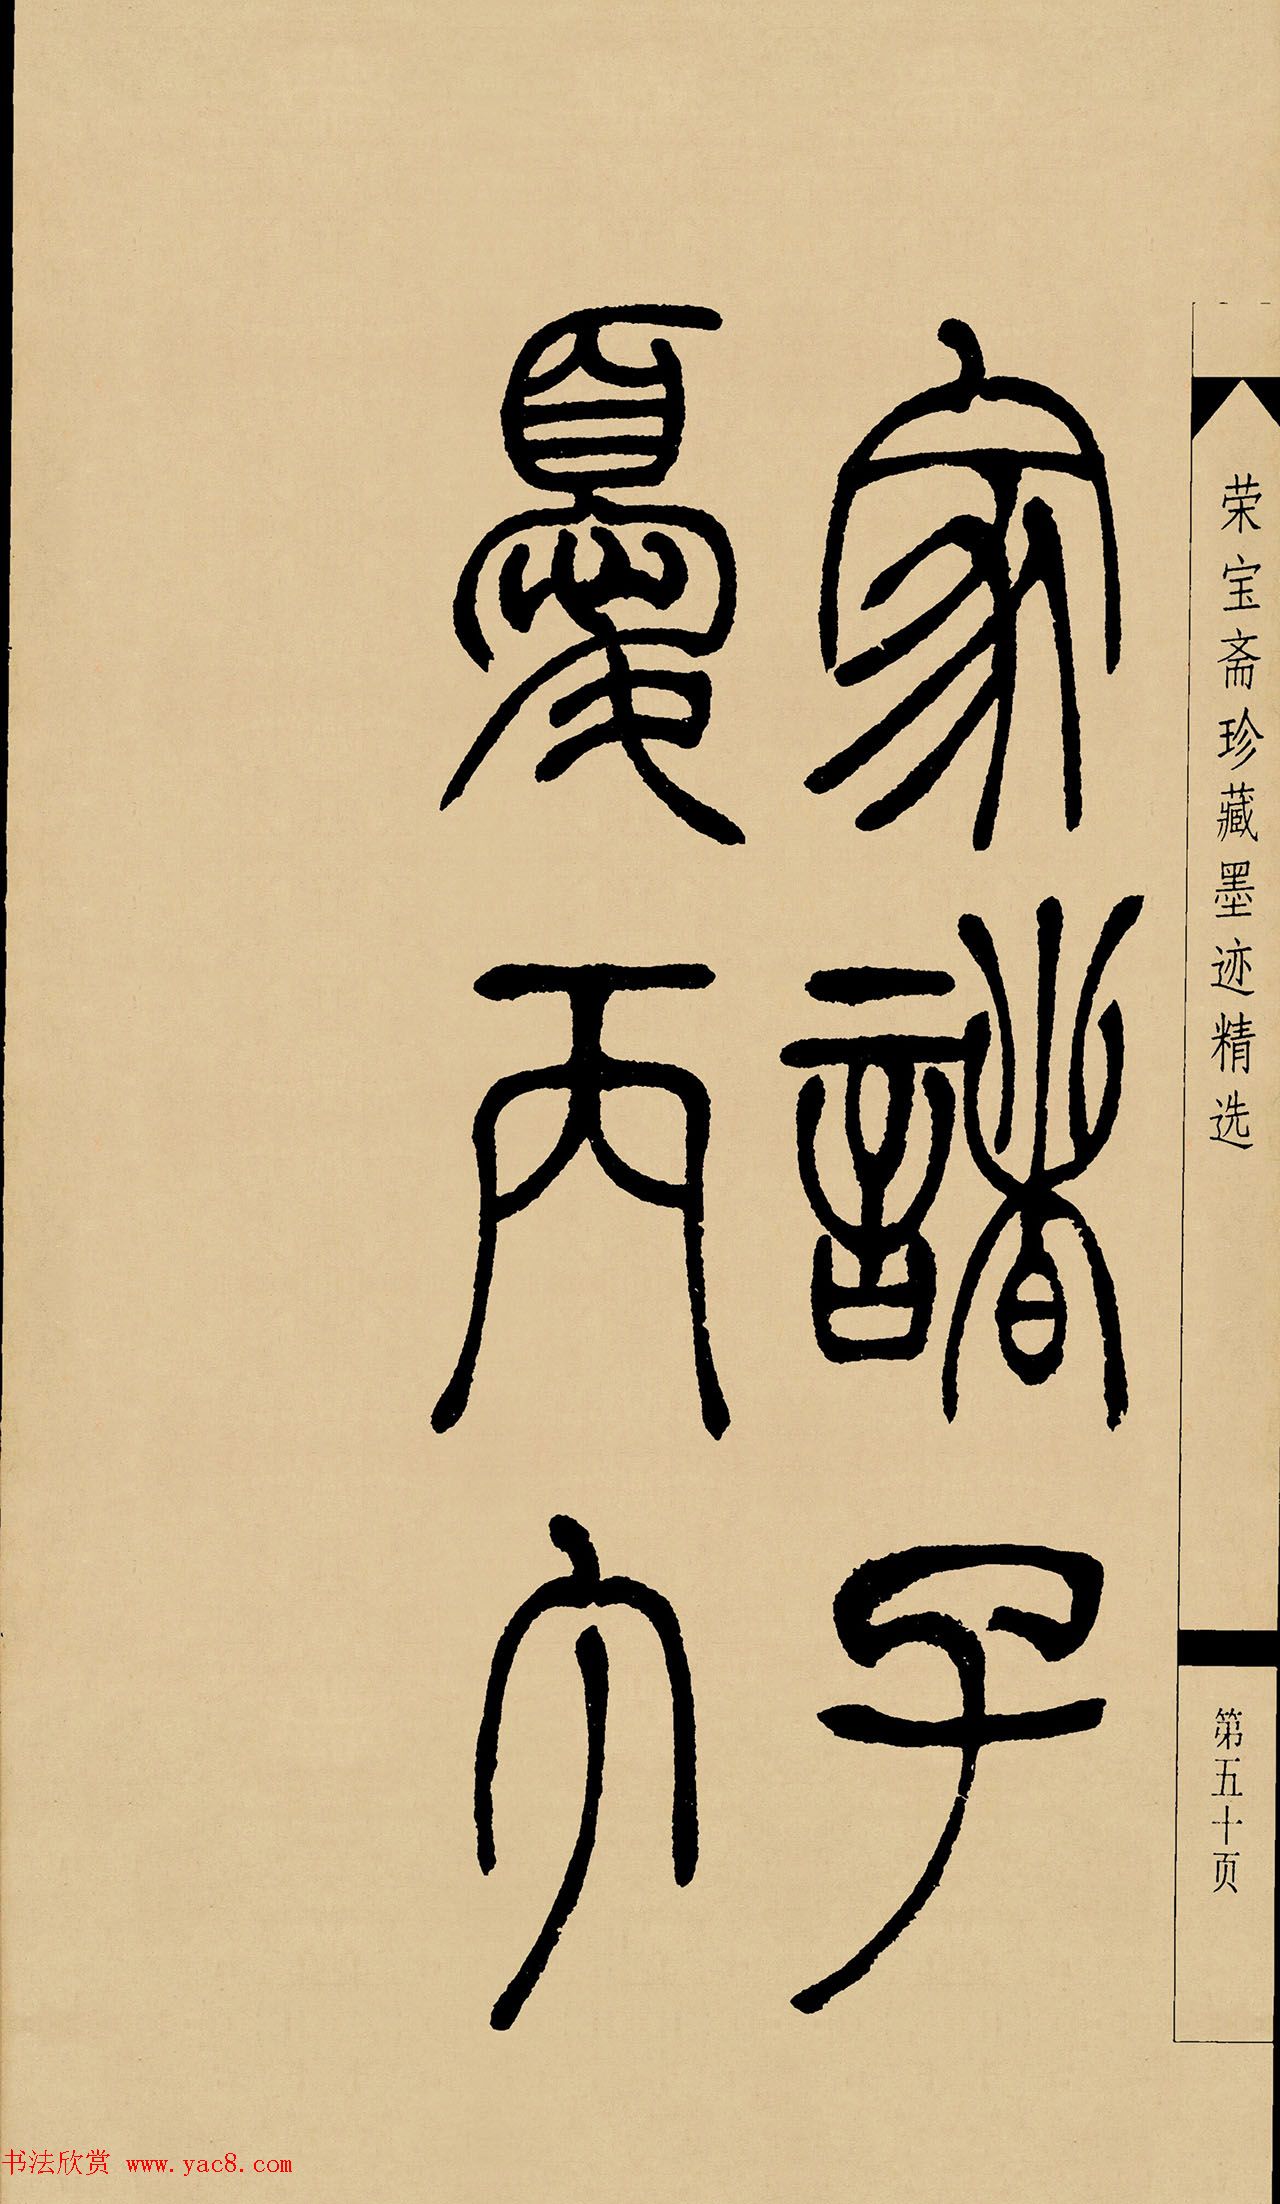 家諸子
憂丙穴
荣宝斋珍藏墨迹精选
第五十页
书法欣赏 www.yac8.com